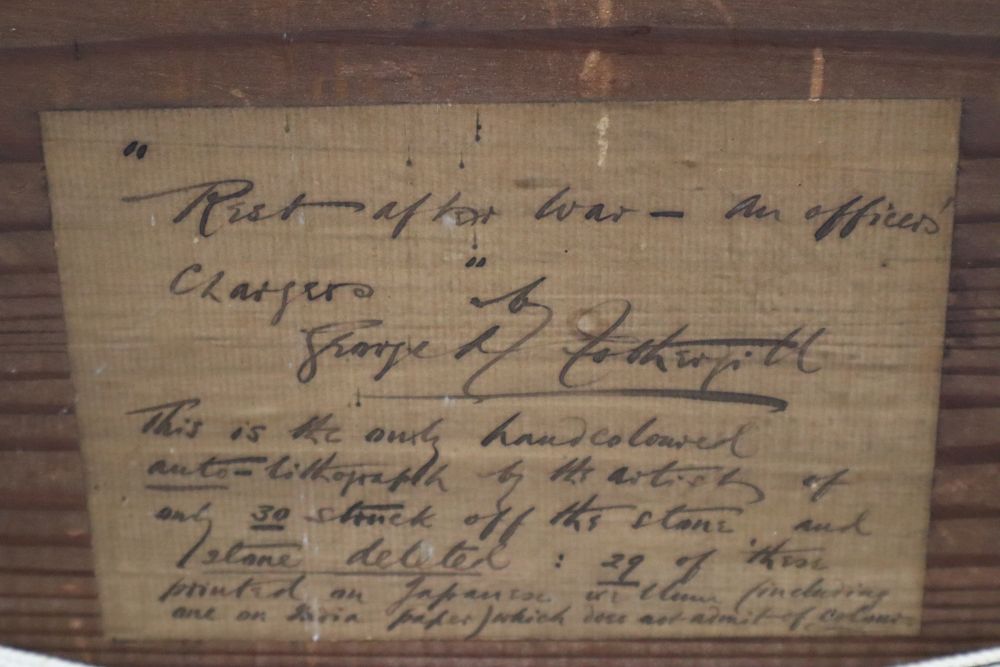 "
Rest after war - An officers'
Chargers " by
George A Fothergill
This is the only handcoloured
auto-lithograph by the artist of
only 30 struck off the stone and
stone deleted : 29 of these
printed on Japanese (including
one on paper) which does not admit of colour